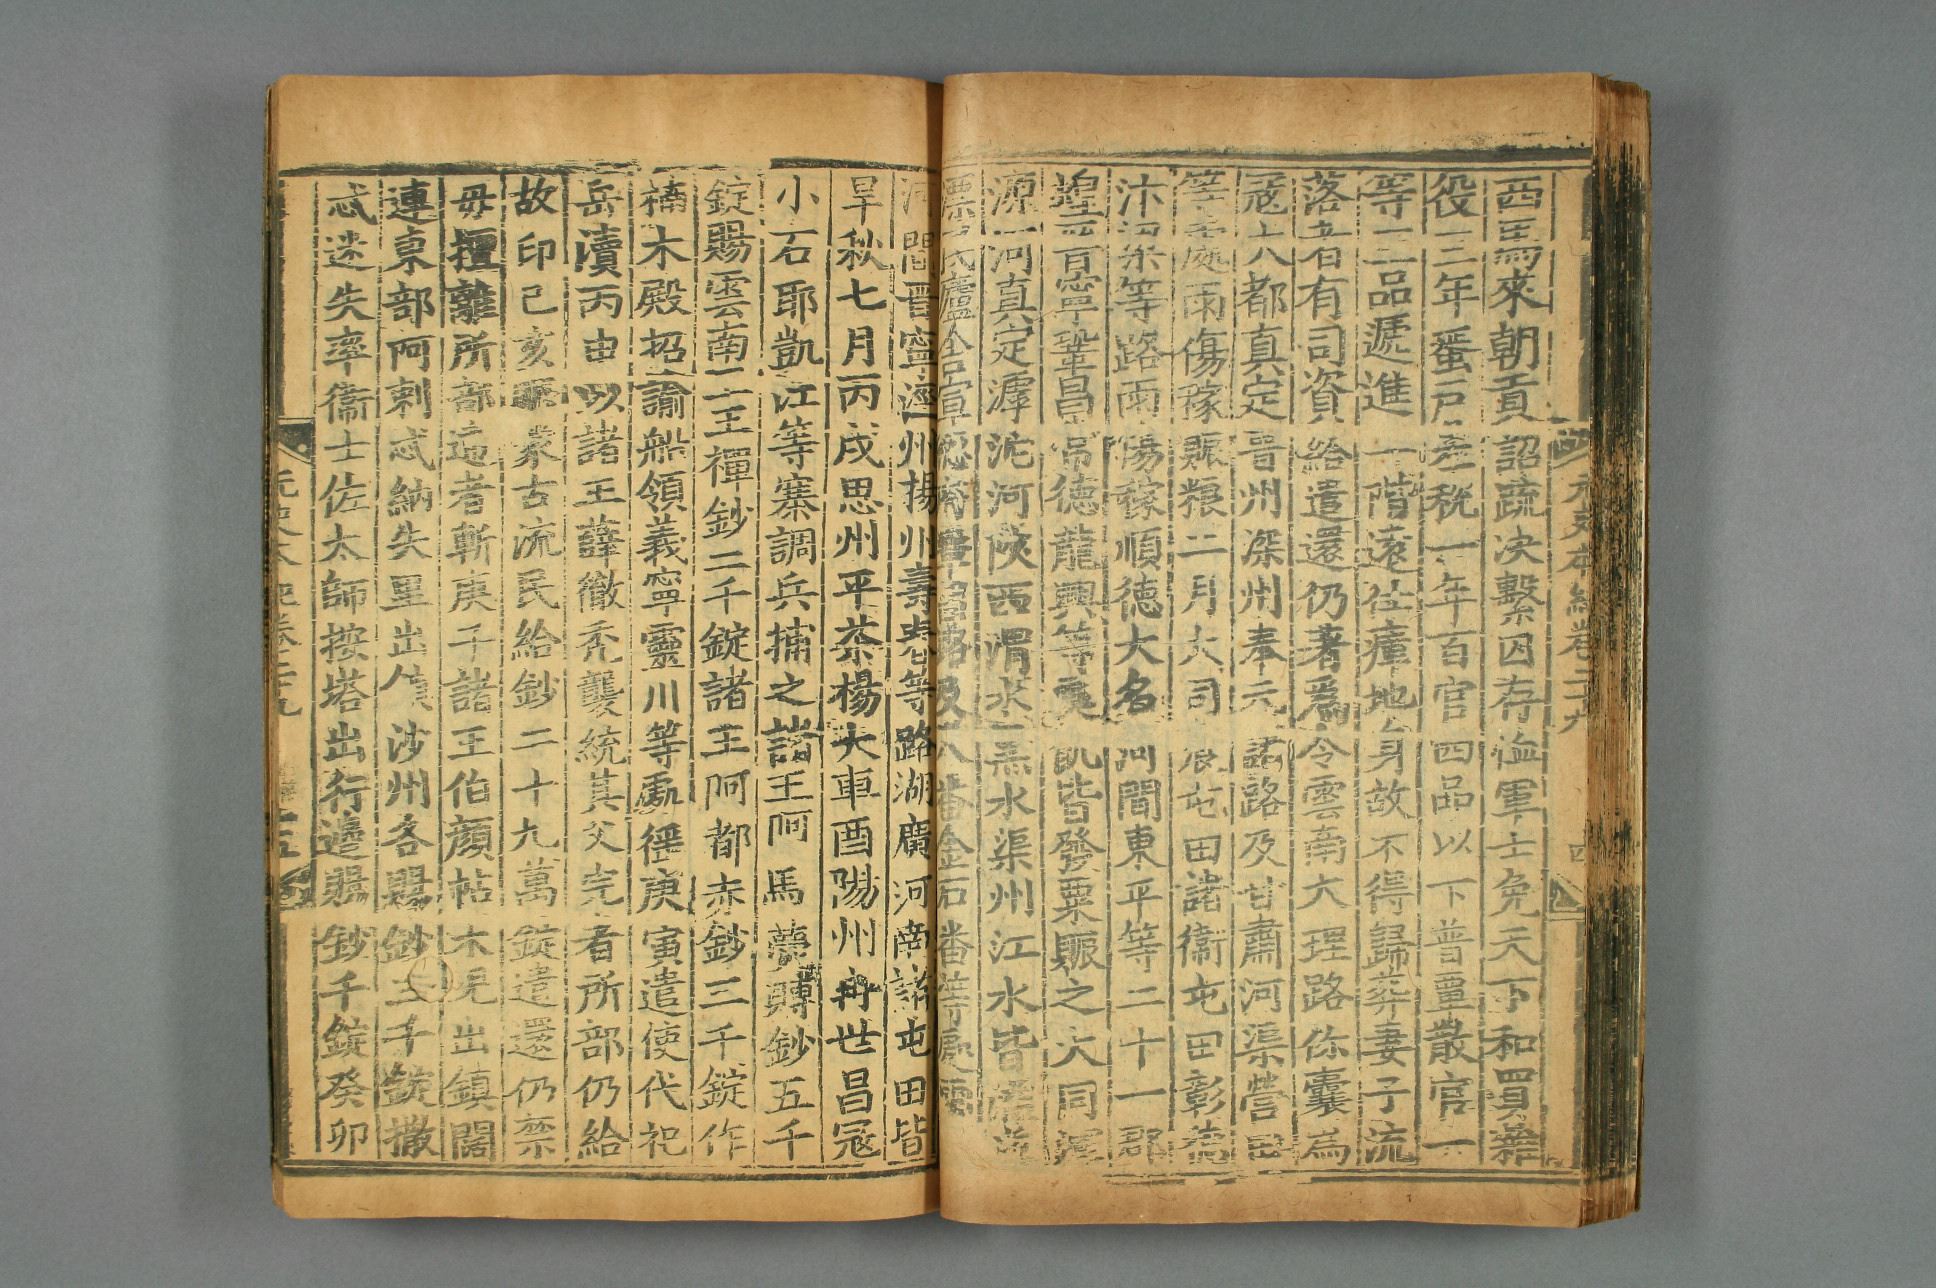 西馬來朝貢詔疏決繫囚存恤軍士免天下和買雜
役三年蜑戶差稅一年百官四品以下普覃散官一
等三品遞進一階遠仕瘴地身故不得歸葬妻子流
落者有司資給遣還仍著爲令雲南大理路你囊爲
寇大都真定晉州深州奉元諸路及甘肅河渠營田
等處雨傷稼賑糧二月大司農屯田諸衛屯田彰德
汴梁等路雨傷稼順德大名河間東平等二十一郡
蝗晉寧鞏昌常德龍興等處飢皆發粟賑之大同渾
源河真定滹沱河陝西渭水黑水渠州江水皆溢並
漂民廬舍宣德府鞏昌路及八番金石番等處雨
河間晉寧涇州揚州壽春等路湖廣河南諸屯田皆
旱秋七月丙戌思州平茶楊大車酉陽州冉世昌寇
小石耶凱江等寨調兵捕之諸王阿馬薨賻鈔五千
錠賜雲南王王禪鈔二千錠諸王阿都赤鈔三千錠作
楠木殿招諭船領義寧靈川等處徭庚寅遣使代祀
岳瀆丙申以諸王薛徹禿襲統其父完者所部仍給
故印己亥賑蒙古流民給鈔二十九萬錠遣還仍禁
毋擅離所部違者斬庚子諸王伯顏帖木兒出鎮闊
連東部阿剌忒納失里出鎮沙州各賜鈔三千錠撒
忒迷失率衛士佐太師按塔出行邊賜鈔千錠癸卯
元史本紀卷二十九
四
元史本紀卷二十九
五